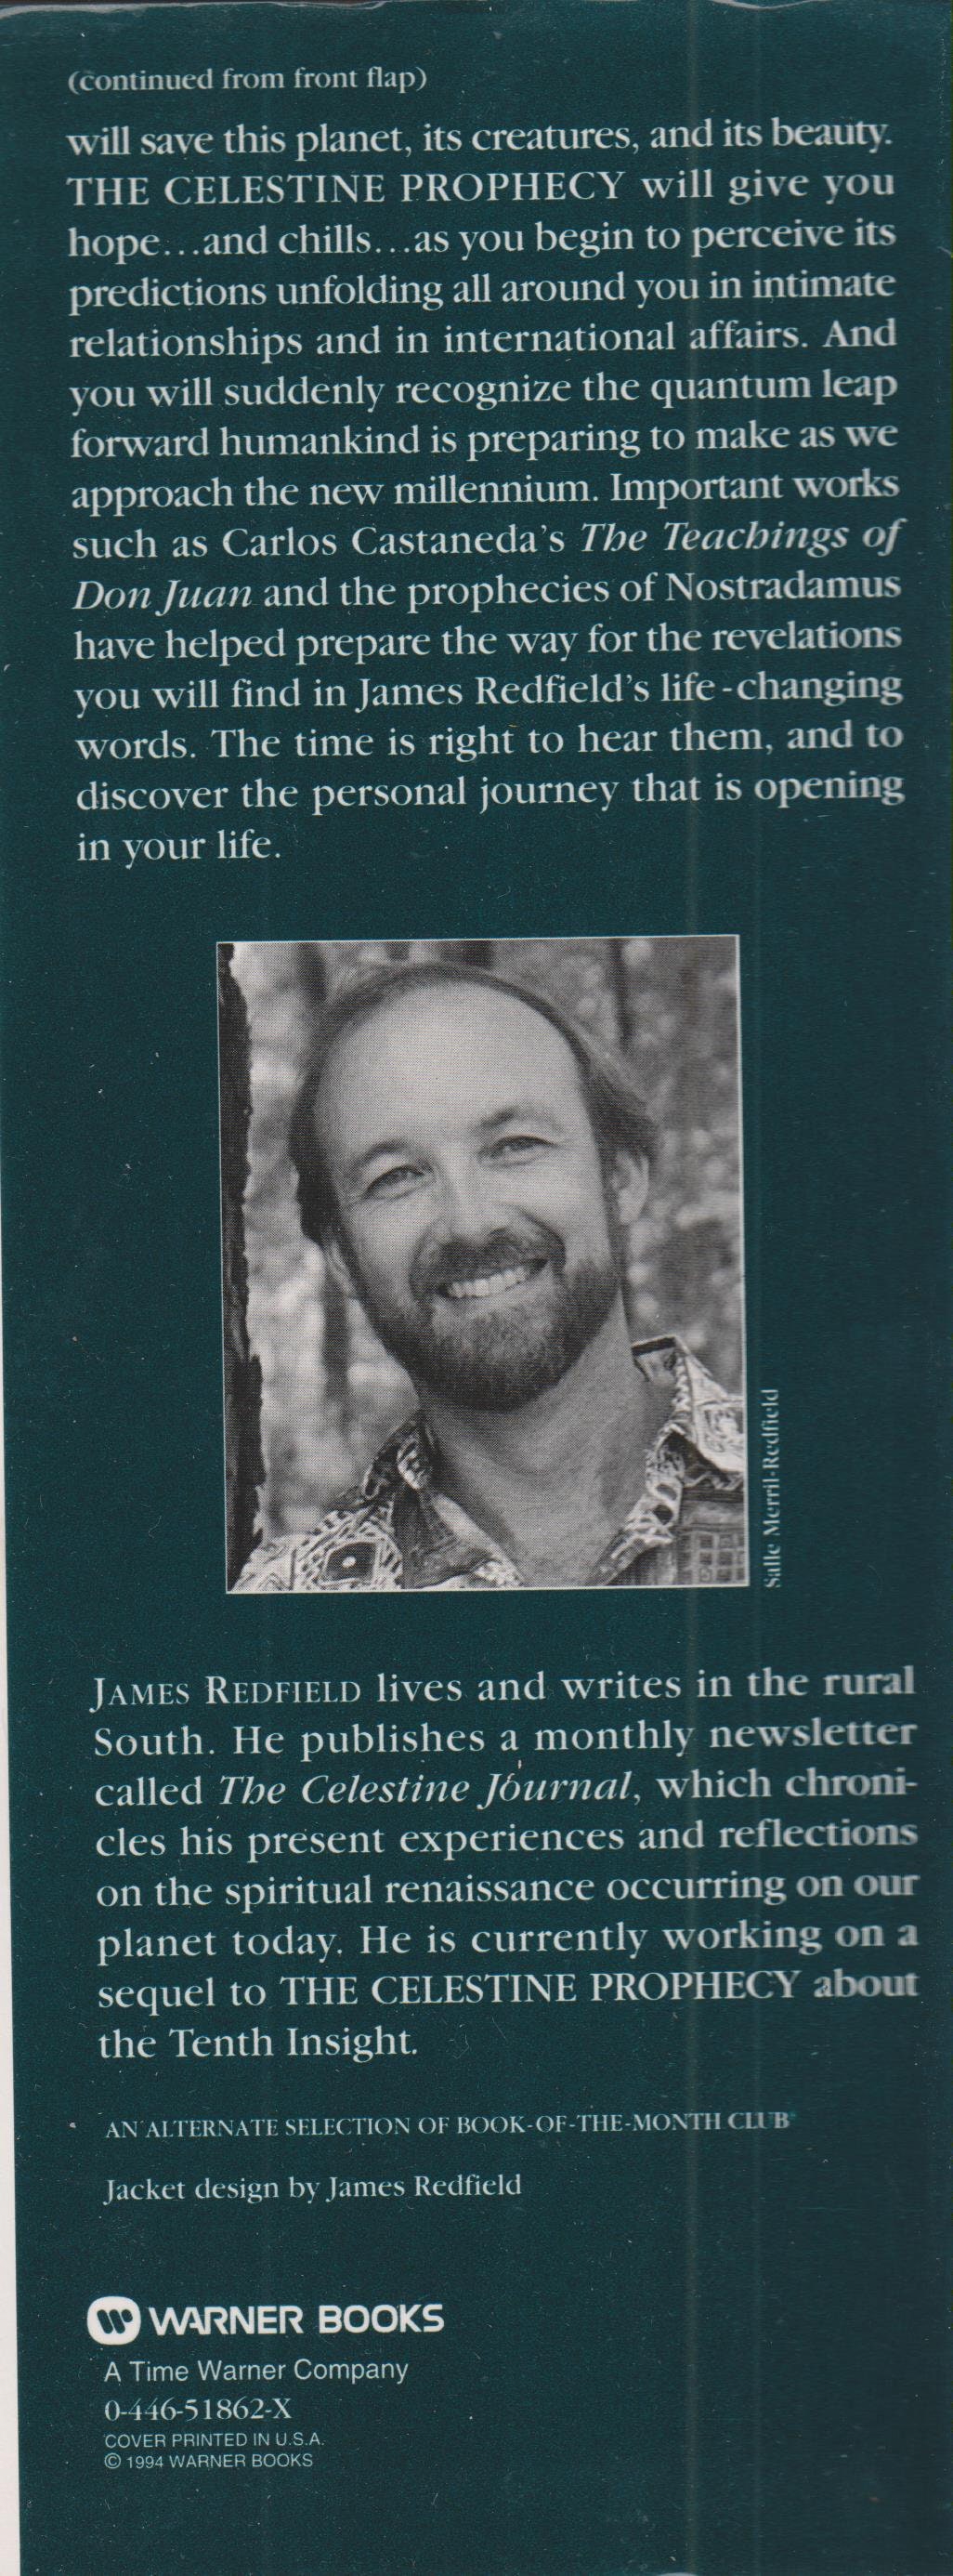 (continued from front flap)
will save this planet, its creatures, and its beauty.
THE CELESTINE PROPHECY will give you
hope...and chills...as you begin to perceive its
predictions unfolding all around you in intimate
relationships and in international affairs. And
you will suddenly recognize the quantum leap
forward humankind is preparing to make as we
approach the new millennium. Important works
such as Carlos Castaneda's The Teachings of
Don Juan and the prophecies of Nostradamus
have helped prepare the way for the revelations
you will find in James Redfield's life-changing
words. The time is right to hear them, and to
discover the personal journey that is opening
in your life.
Salle Merril-Redfield
JAMES REDFIELD lives and writes in the rural
South. He publishes a monthly newsletter
called The Celestine Journal, which chroni-
cles his present experiences and reflections
on the spiritual renaissance occurring on our
planet today. He is currently working on a
sequel to THE CELESTINE PROPHECY about
the Tenth Insight.
AN ALTERNATE SELECTION OF BOOK-OF-THE-MONTH CLUB®
Jacket design by James Redfield
WARNER BOOKS
A Time Warner Company
0-446-51862-X
COVER PRINTED IN U.S.A.
© 1994 WARNER BOOKS